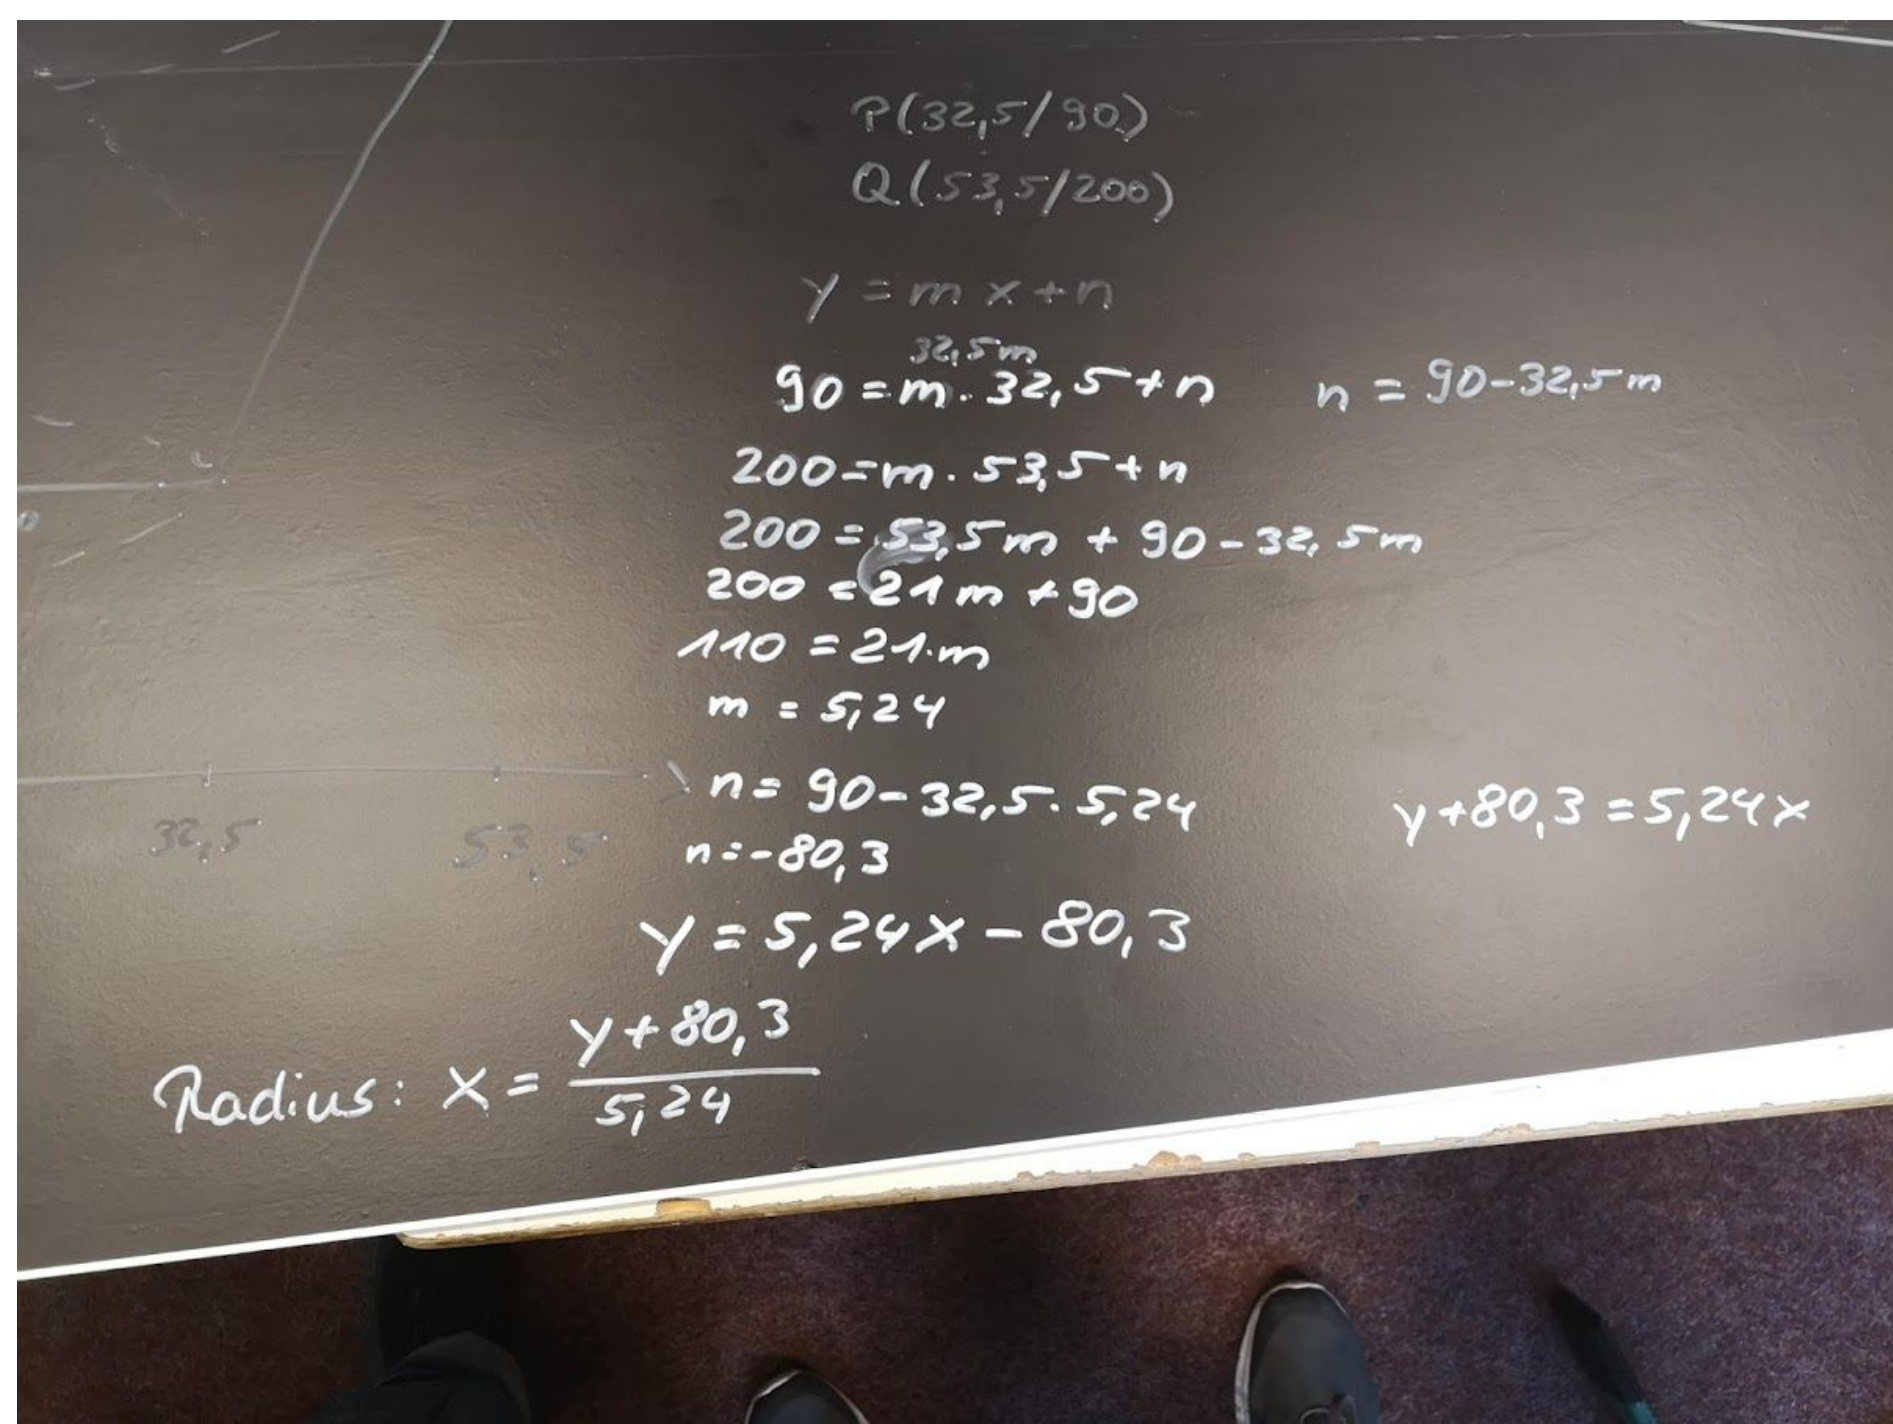 P(32,5/90)
Q(53,5/200)
y = m x + n
32,5m
90 = m · 32,5 + n
n = 90 - 32,5 m
200 = m · 53,5 + n
200 = 53,5 m + 90 - 32,5 m
200 = 21 m + 90
110 = 21 · m
m = 5,24
n = 90 - 32,5 · 5,24
y + 80,3 = 5,24 x
32,5
53,5
n = -80,3
y = 5,24 x - 80,3
Radius: x = (y + 80,3) / 5,24